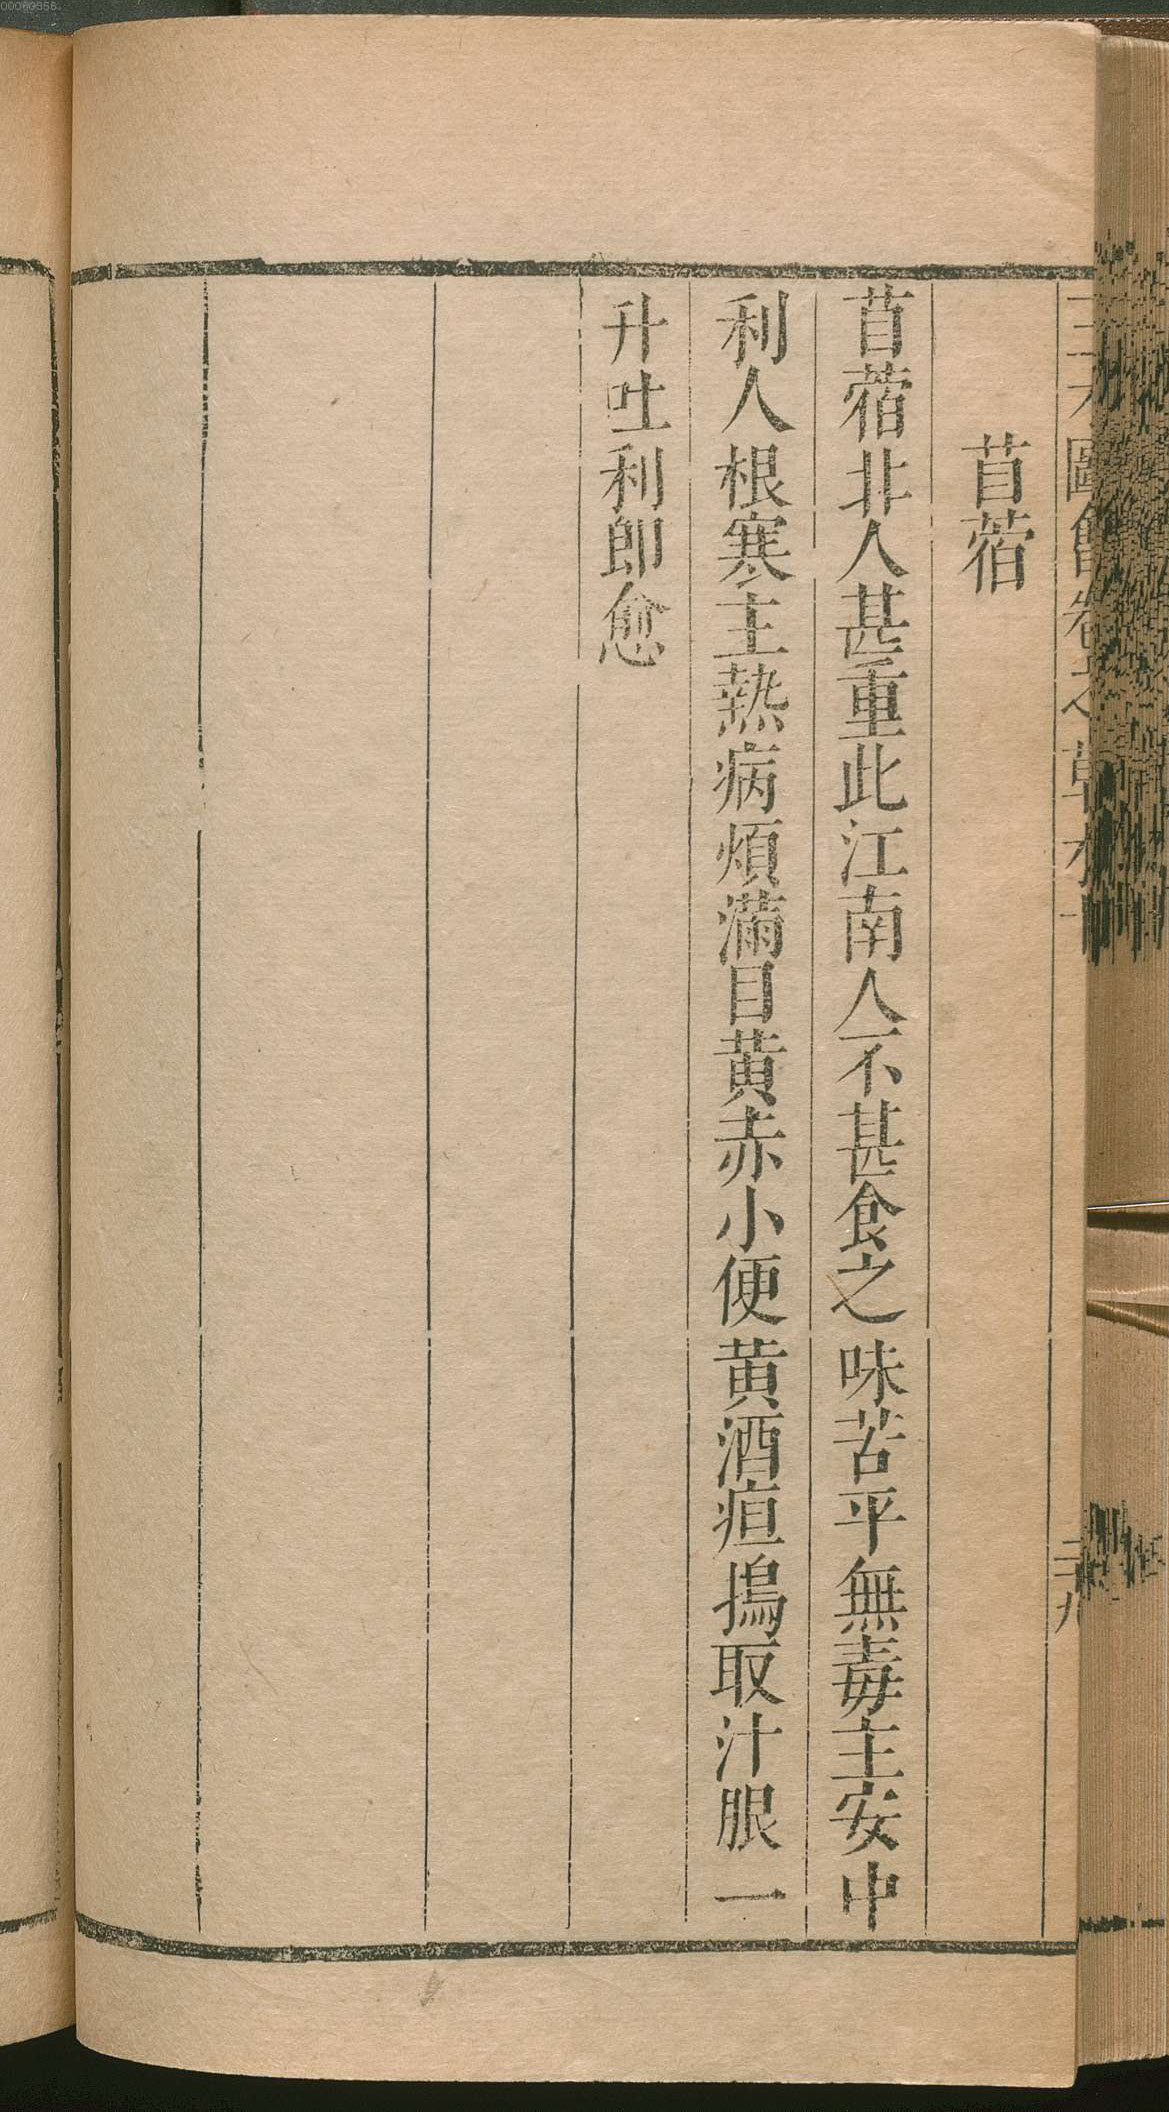 苜蓿
苜蓿非人甚重此江南人不甚食之味苦平無毒主安中
利人根寒主熱病煩滿目黃赤小便黄酒疸搗取汁服一
升吐利即愈